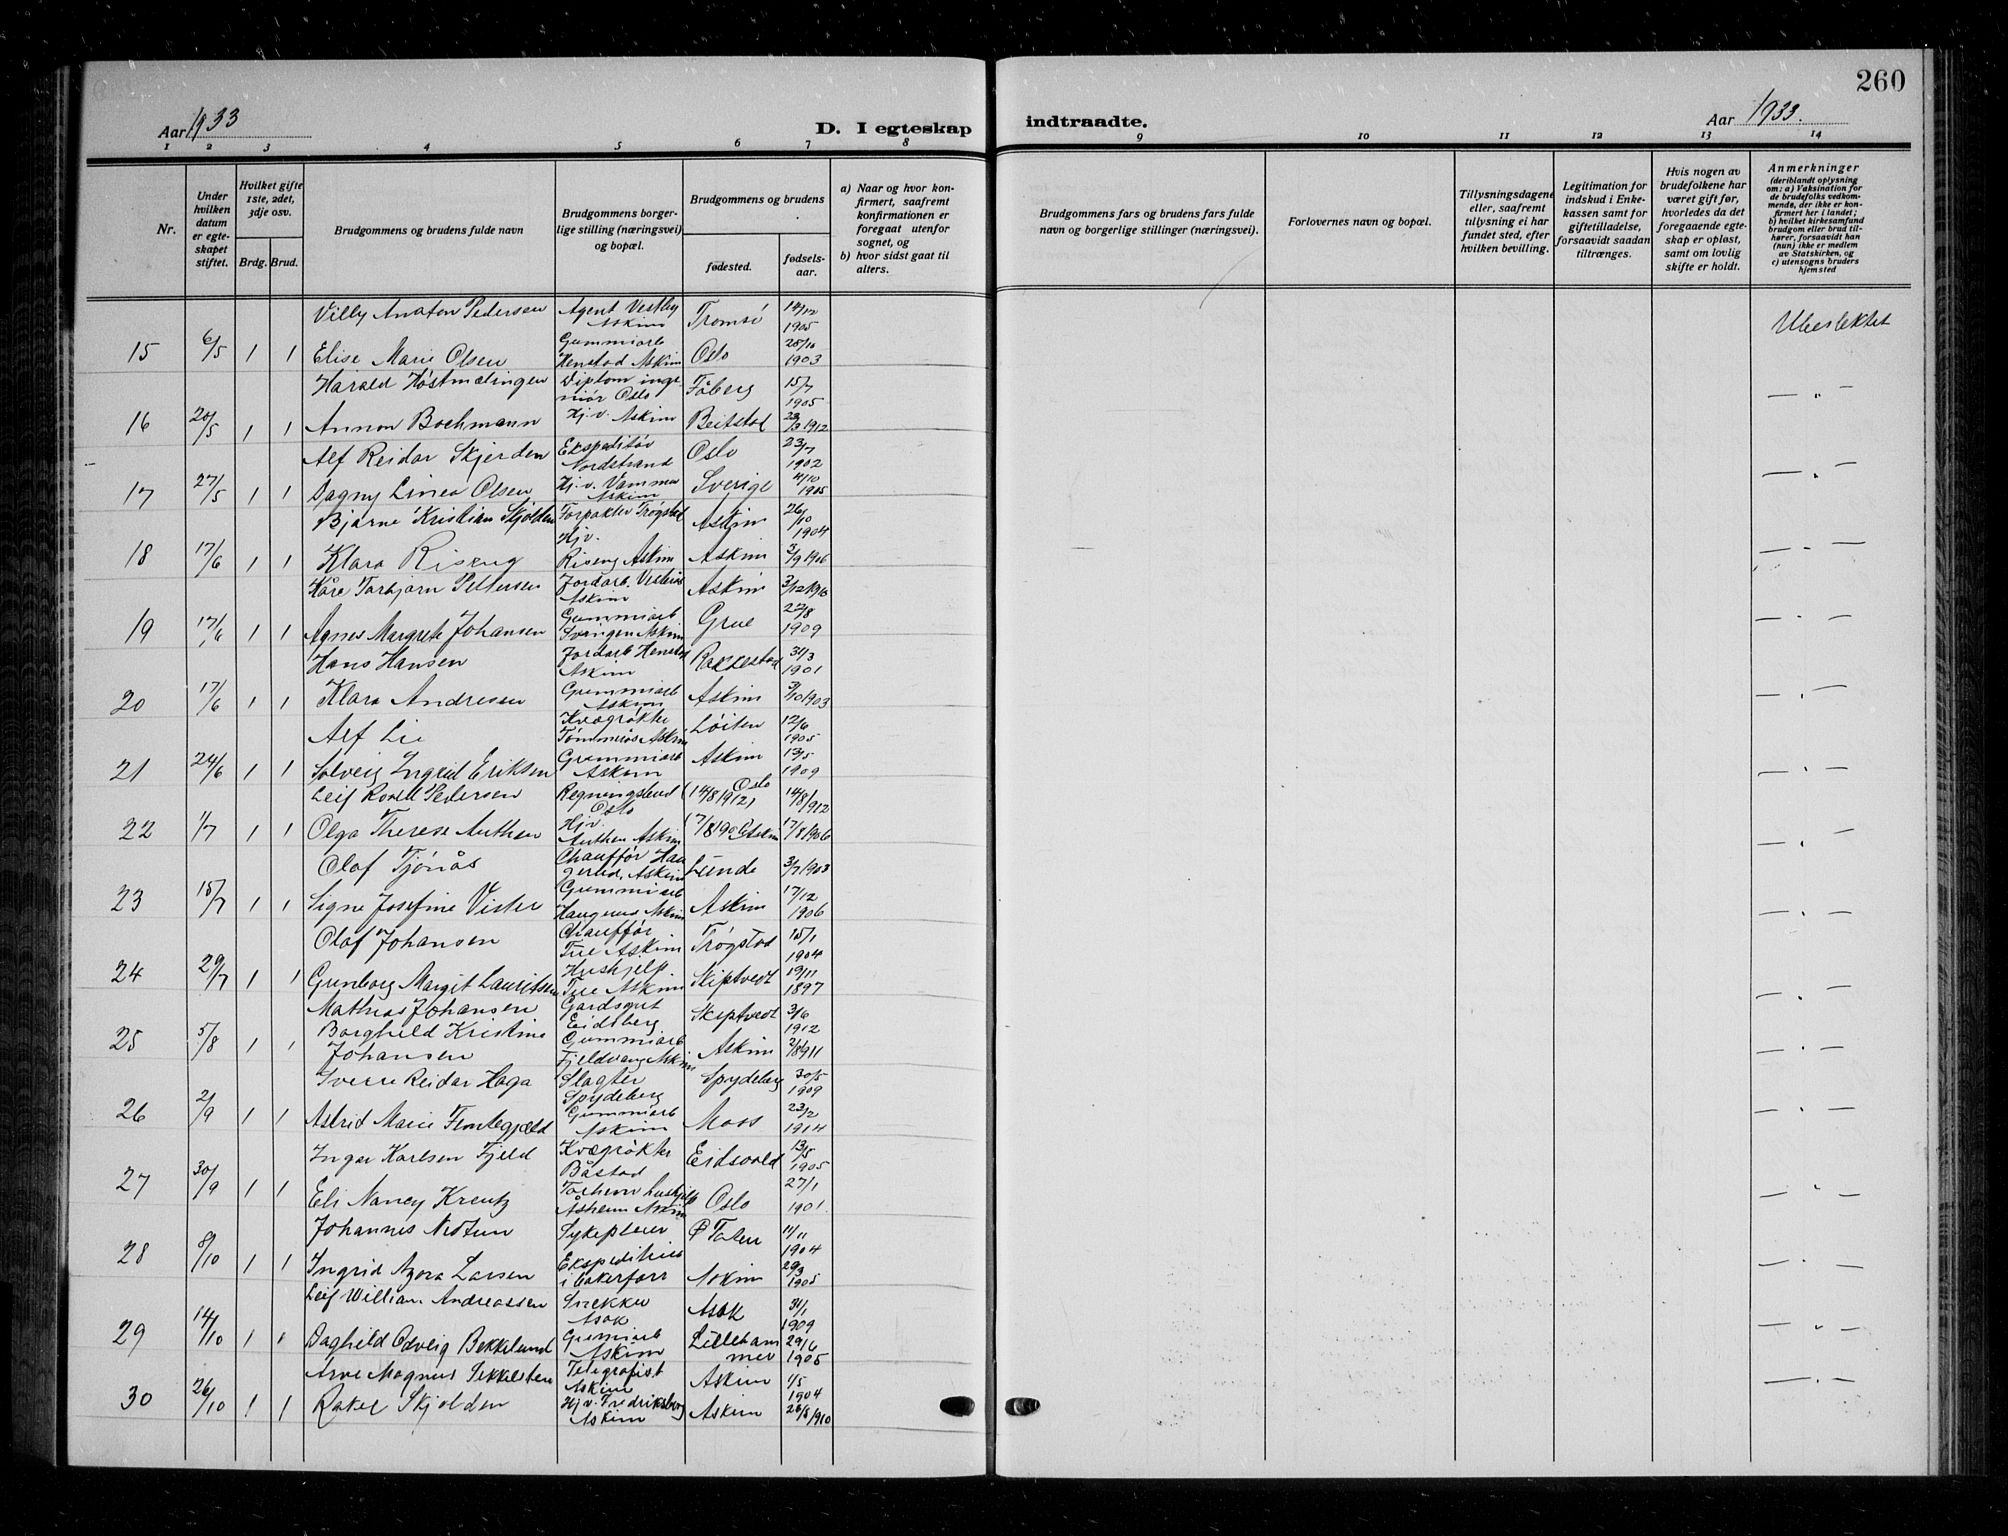 260
Aar 1933
D. I egteskap indtraadte.
Aar 1933.
1 2 3 4 5 6 7 8 9 10 11 12 13 14
Nr.
Under hvilken datum er egteskapet stiftet.
Hvilket gifte 1ste, 2det, 3dje osv.
Brdg. Brud.
Brudgommens og brudens fulde navn
Brudgommens borgerlige stilling (næringsvei) og bopæl.
Brudgommens og brudens
fødested.
fødselsaar.
a) Naar og hvor konfirmert, saafremt konfirmationen er foregaat utenfor sognet, og
b) hvor sidst gaat til alters.
Brudgommens fars og brudens fars fulde navn og borgerlige stillinger (næringsvei).
Forlovernes navn og bopæl.
Tillysningsdagene eller, saafremt tillysning ei har fundet sted, efter hvilken bevilling.
Legitimation for indskud i Enkekassen samt for giftetilladelse, forsaavidt saadan tiltrænges.
Hvis nogen av brudefolkene har været gift før, hvorledes da det foregaaende egteskap er opløst, samt om lovlig skifte er holdt.
Anmerkninger
(deriblandt oplysning om: a) Vaksination for de brudefolks vedkommende, der ikke er konfirmert her i landet; b) hvilket kirkesamfund brudgom eller brud tilhører, forsaavidt han (hun) ikke er medlem av Statskirken, og c) utensogns bruders hjemsted
Villy Anaton Pedersen Agent Vestby Askim Tromsö 14/12 1905
15 6/5 1 1 Elise Marie Olsen Gummiarb Henstad Askim Oslo 25/10 1903 Ubeslektet
Harald Høstmælingen Diplom ingeniør Oslo Fåberg 15/7 1905
16 20/5 1 1 Annon Bochmann Hj.v. Askim Beitstad 1912 — " —
Alf Reidar Skjerden Ekspeditör Nordstrand Oslo 23/7 1902
17 27/5 1 1 Dagny Linea Olsen Hj.v. Vamma Askim Sverige 4/10 1905 — " —
Bjarne Kristian Skjolden Forpakter Trøgstad Askim 26/10 1904
18 17/6 1 1 Klara Riseng Hjv. Riseng Askim Askim 3/9 1906 — " —
Kåre Torbjørn Pettersen Jordarb. Askim Askim 3/12
19 17/6 1 1 Agnes Margrete Johansen Gummiarb Svingen Askim Grue 22/8 1909 — " —
Hans Hansen Jordarb Henstad Askim Rakkestad 31/3 1901
20 17/6 1 1 Klara Andresen Gummiarb Askim Askim 3/10 1903 — " —
Alf Lie Kvægrøkter Tømmerås Askim Löiten 12/6 1905
21 24/6 1 1 Solveig Ingrid Eriksen Gummiarb Askim Askim 13/5 1909 — " —
Leif Pedersen Regningsbud Oslo (14/8 1912) Oslo 14/8 1912
22 1/7 1 1 Olga Therese Authen Hjv. Authen Askim Askim 17/8 1906 — " —
Olaf Tjönås Chauffør Askim Lunde 3/7 1903
23 15/7 1 1 Signe Josefine Vister Gummiarb Askim Askim 17/12 1906 — " —
Olaf Johansen Chauffør Tue Askim Trøgstad 15/1 1904
24 29/7 1 1 Gunborg Margit Lauritsen Hushjelp Tue Askim Skiptvedt 19/11 1897 — " —
Mathias Johansen Gardsgut Eidsberg Skiptvedt 3/6 1912
25 5/8 1 1 Borghild Kristine Johansen Gummiarb Fjeldvang Askim Askim 2/8 1911 — " —
Sverre Reidar Haga Slagter Spydeberg Spydeberg 30/5 1909
26 2/9 1 1 Astrid Marie Gummiarb Askim Moss 23/2 1914 — " —
Ingar Karlsen Fjeld Kvægrøkter Båstad Eidsvold 13/5 1905
27 30/9 1 1 Eli Nancy Kreutz Åsheim Askim Oslo 27/1 1901 — " —
Johannes Nedtun Sykepleier 1904
28 8/10 1 1 Ingrid Agora Larsen Ekspeditrise i bakerforr Askim 29/3 1905 — " —
Leif William Andreassen Snekker Asak Asak 31/1 1909
29 14/10 1 1 Daghild Odveig Bekkelund Gumiarb Askim Lillehammer 29/6 1905 — " —
Arne Magnus Sekkelsten Telegrafist Askim Askim 1/5 1904
30 26/10 1 1 Rakel Skjolden Hjv. Fredriksberg Askim Askim 26/8 1910 — " —